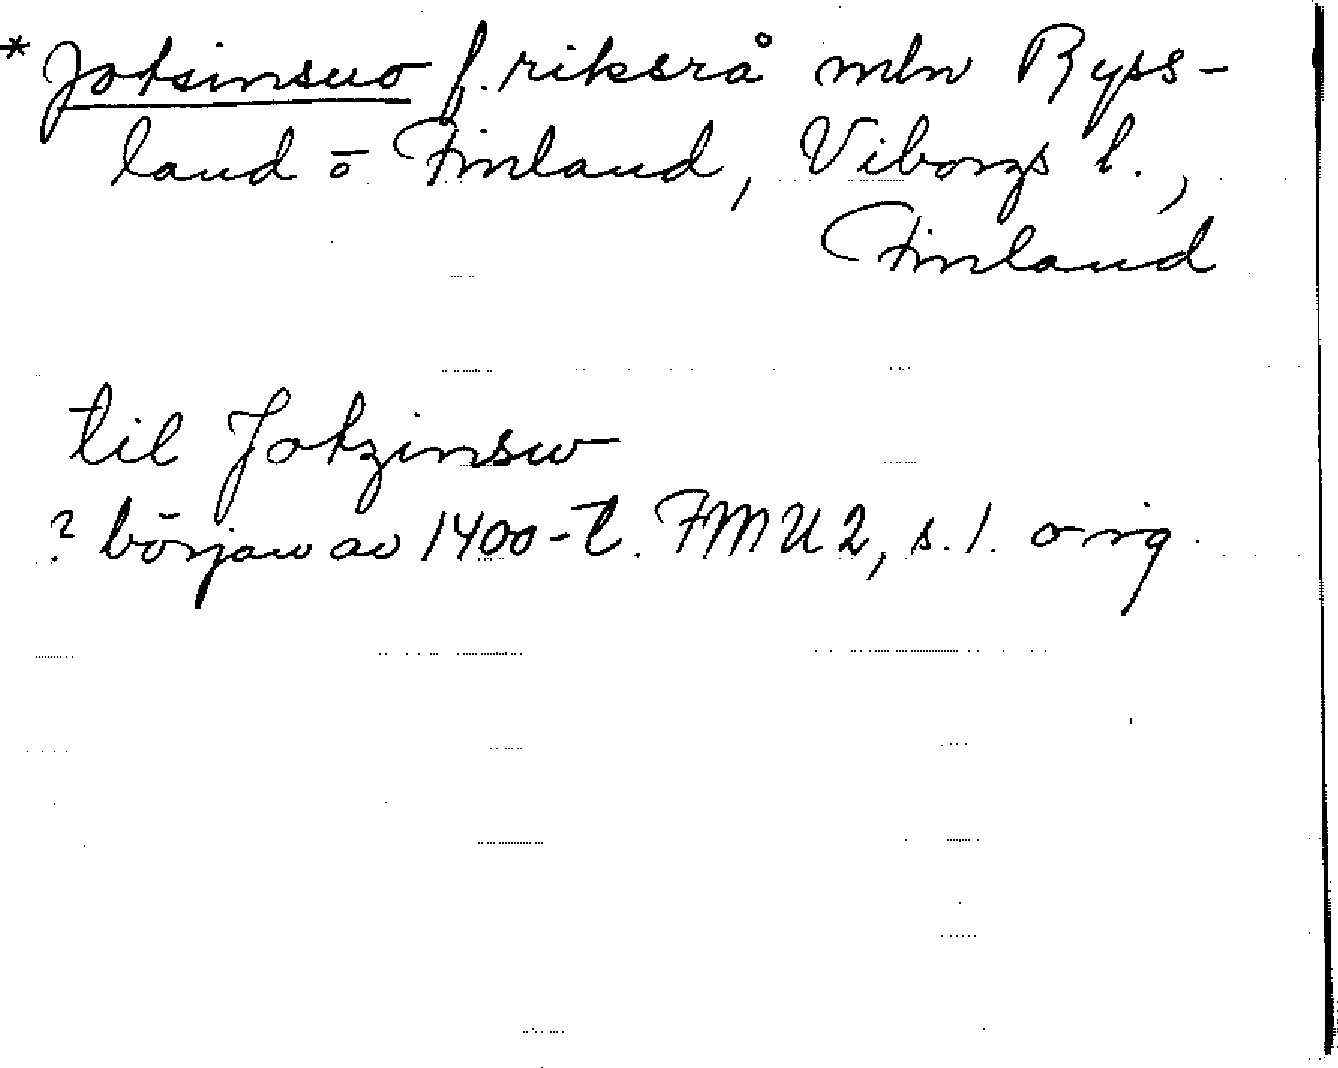 * Jotsinsuo f. riksrå mln Ryss-
land ö Finland, Viborgs l.,
Finland
til Jotzinsw
? början av 1400-t. FMU 2, s. 1. orig